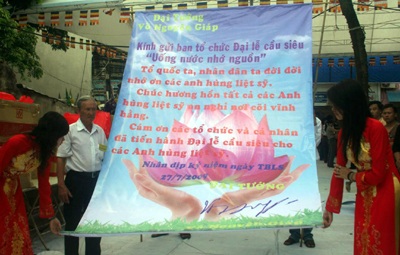 Đại Tướng
Võ Nguyên Giáp
Kính gửi ban tổ chức Đại lễ cầu siêu
"Uống nước nhớ nguồn"
Tổ quốc ta, nhân dân ta đời đời
nhớ ơn các anh hùng liệt sỹ.
Chúc hương hồn tất cả các Anh
hùng liệt sỹ an nghỉ nơi cõi vĩnh
hằng.
Cảm ơn các tổ chức và cá nhân
đã tiến hành Đại lễ cầu siêu cho
các Anh hùng liệt sỹ.
Nhân dịp kỷ niệm ngày TBLS
27/7/200
ĐẠI TƯỚNG